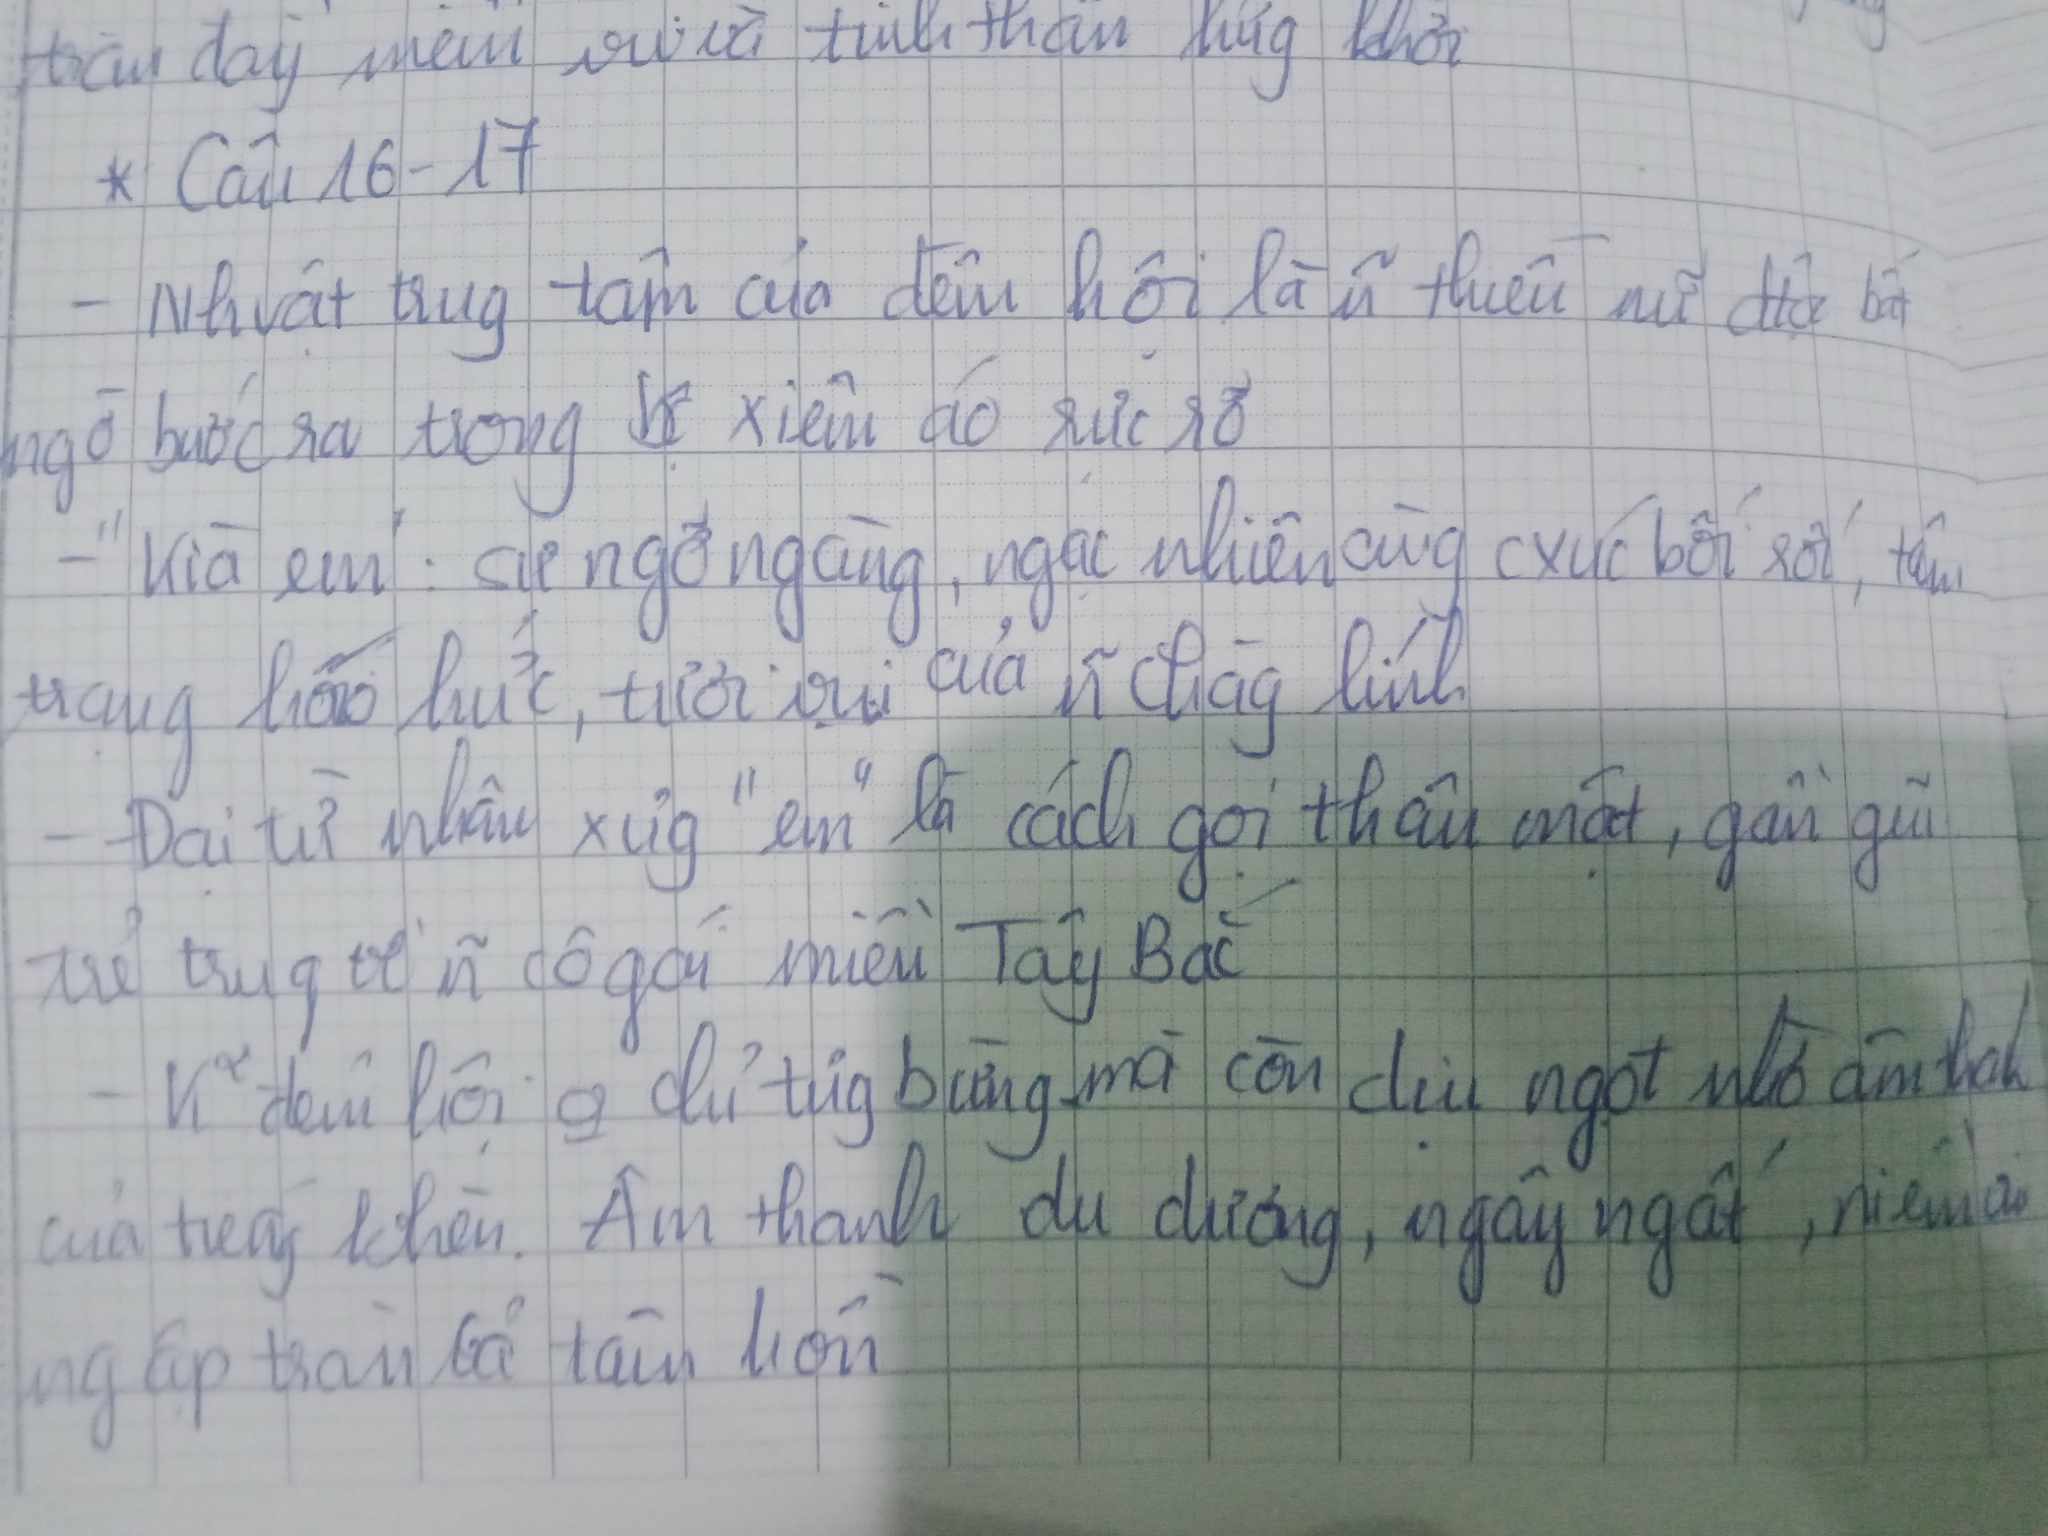 tràn đầy niềm vui và tinh thần hứg khởi
* Câu 16-17
- Nh vật trug tâm của đêm hội là ~n thiếu nữ đtộc bất
ngờ bước ra trong bộ xiêm áo rực rỡ
- "Kìa em": sự ngỡ ngàng, ngạc nhiên cùg cxúc bối rối, tâm
trạng háo hức, tươi vui của ~n chàg lính
- Đại từ nhân xưg "em" là cách gọi thân mật, gần gũi
trẻ trug về ~n cô gái miền Tây Bắc
- K² đêm hội o chỉ tưg bừng mà còn dịu ngọt nhờ âm thah
của tiếg khèn. Âm thanh du dương, ngây ngất, niềm
ngập tràn cả tâm hồn